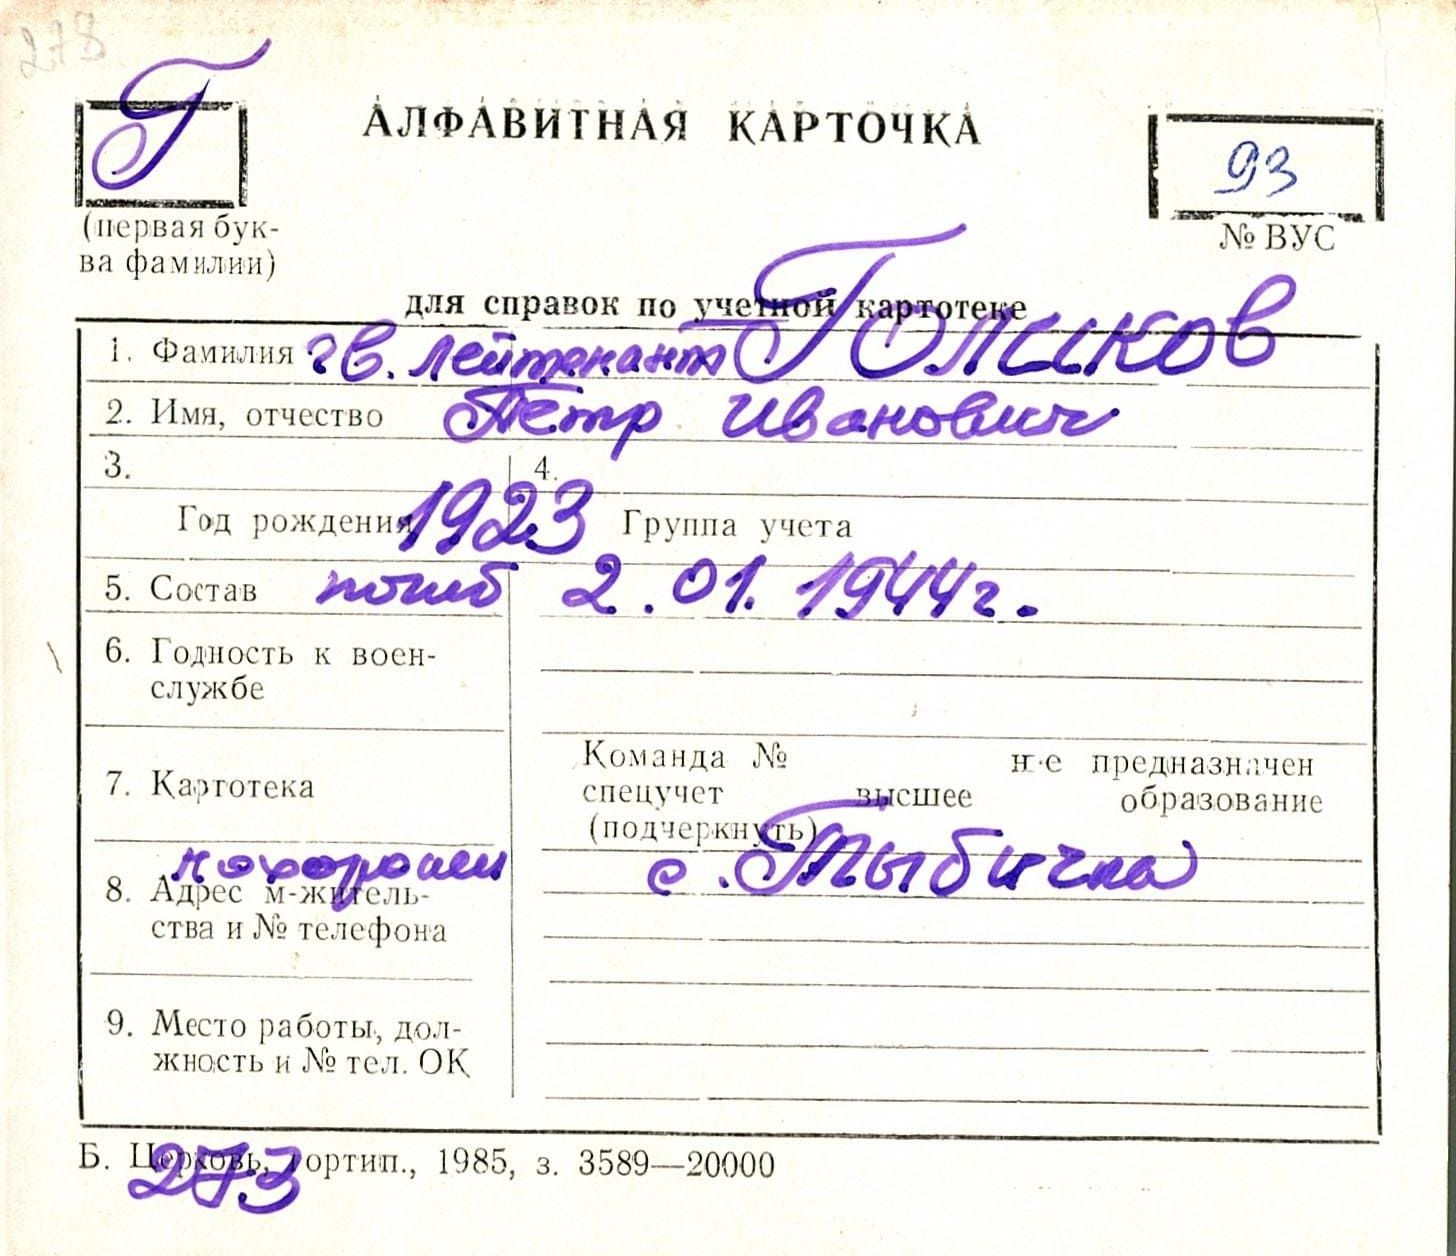 278
Г
АЛФАВИТНАЯ КАРТОЧКА
93
(первая бук-
ва фамилии)
№ ВУС
для справок по учетной картотеке
1. Фамилия гв. лейтенант Голиков
2. Имя, отчество Пётр Иванович
3. 4.
Год рождения 1923 Группа учета
5. Состав погиб 2.01.1944г.
6. Годность к воен-
службе
Команда № не предназначен
7. Картотека
спецучет высшее образование
(подчеркнуть)
похоронен с. Тыбична
8. Адрес м-житель-
ства и № телефона
9. Место работы, дол-
жность и № тел. ОК
Б. Церковь, гортип., 1985, з. 3589—20000
273